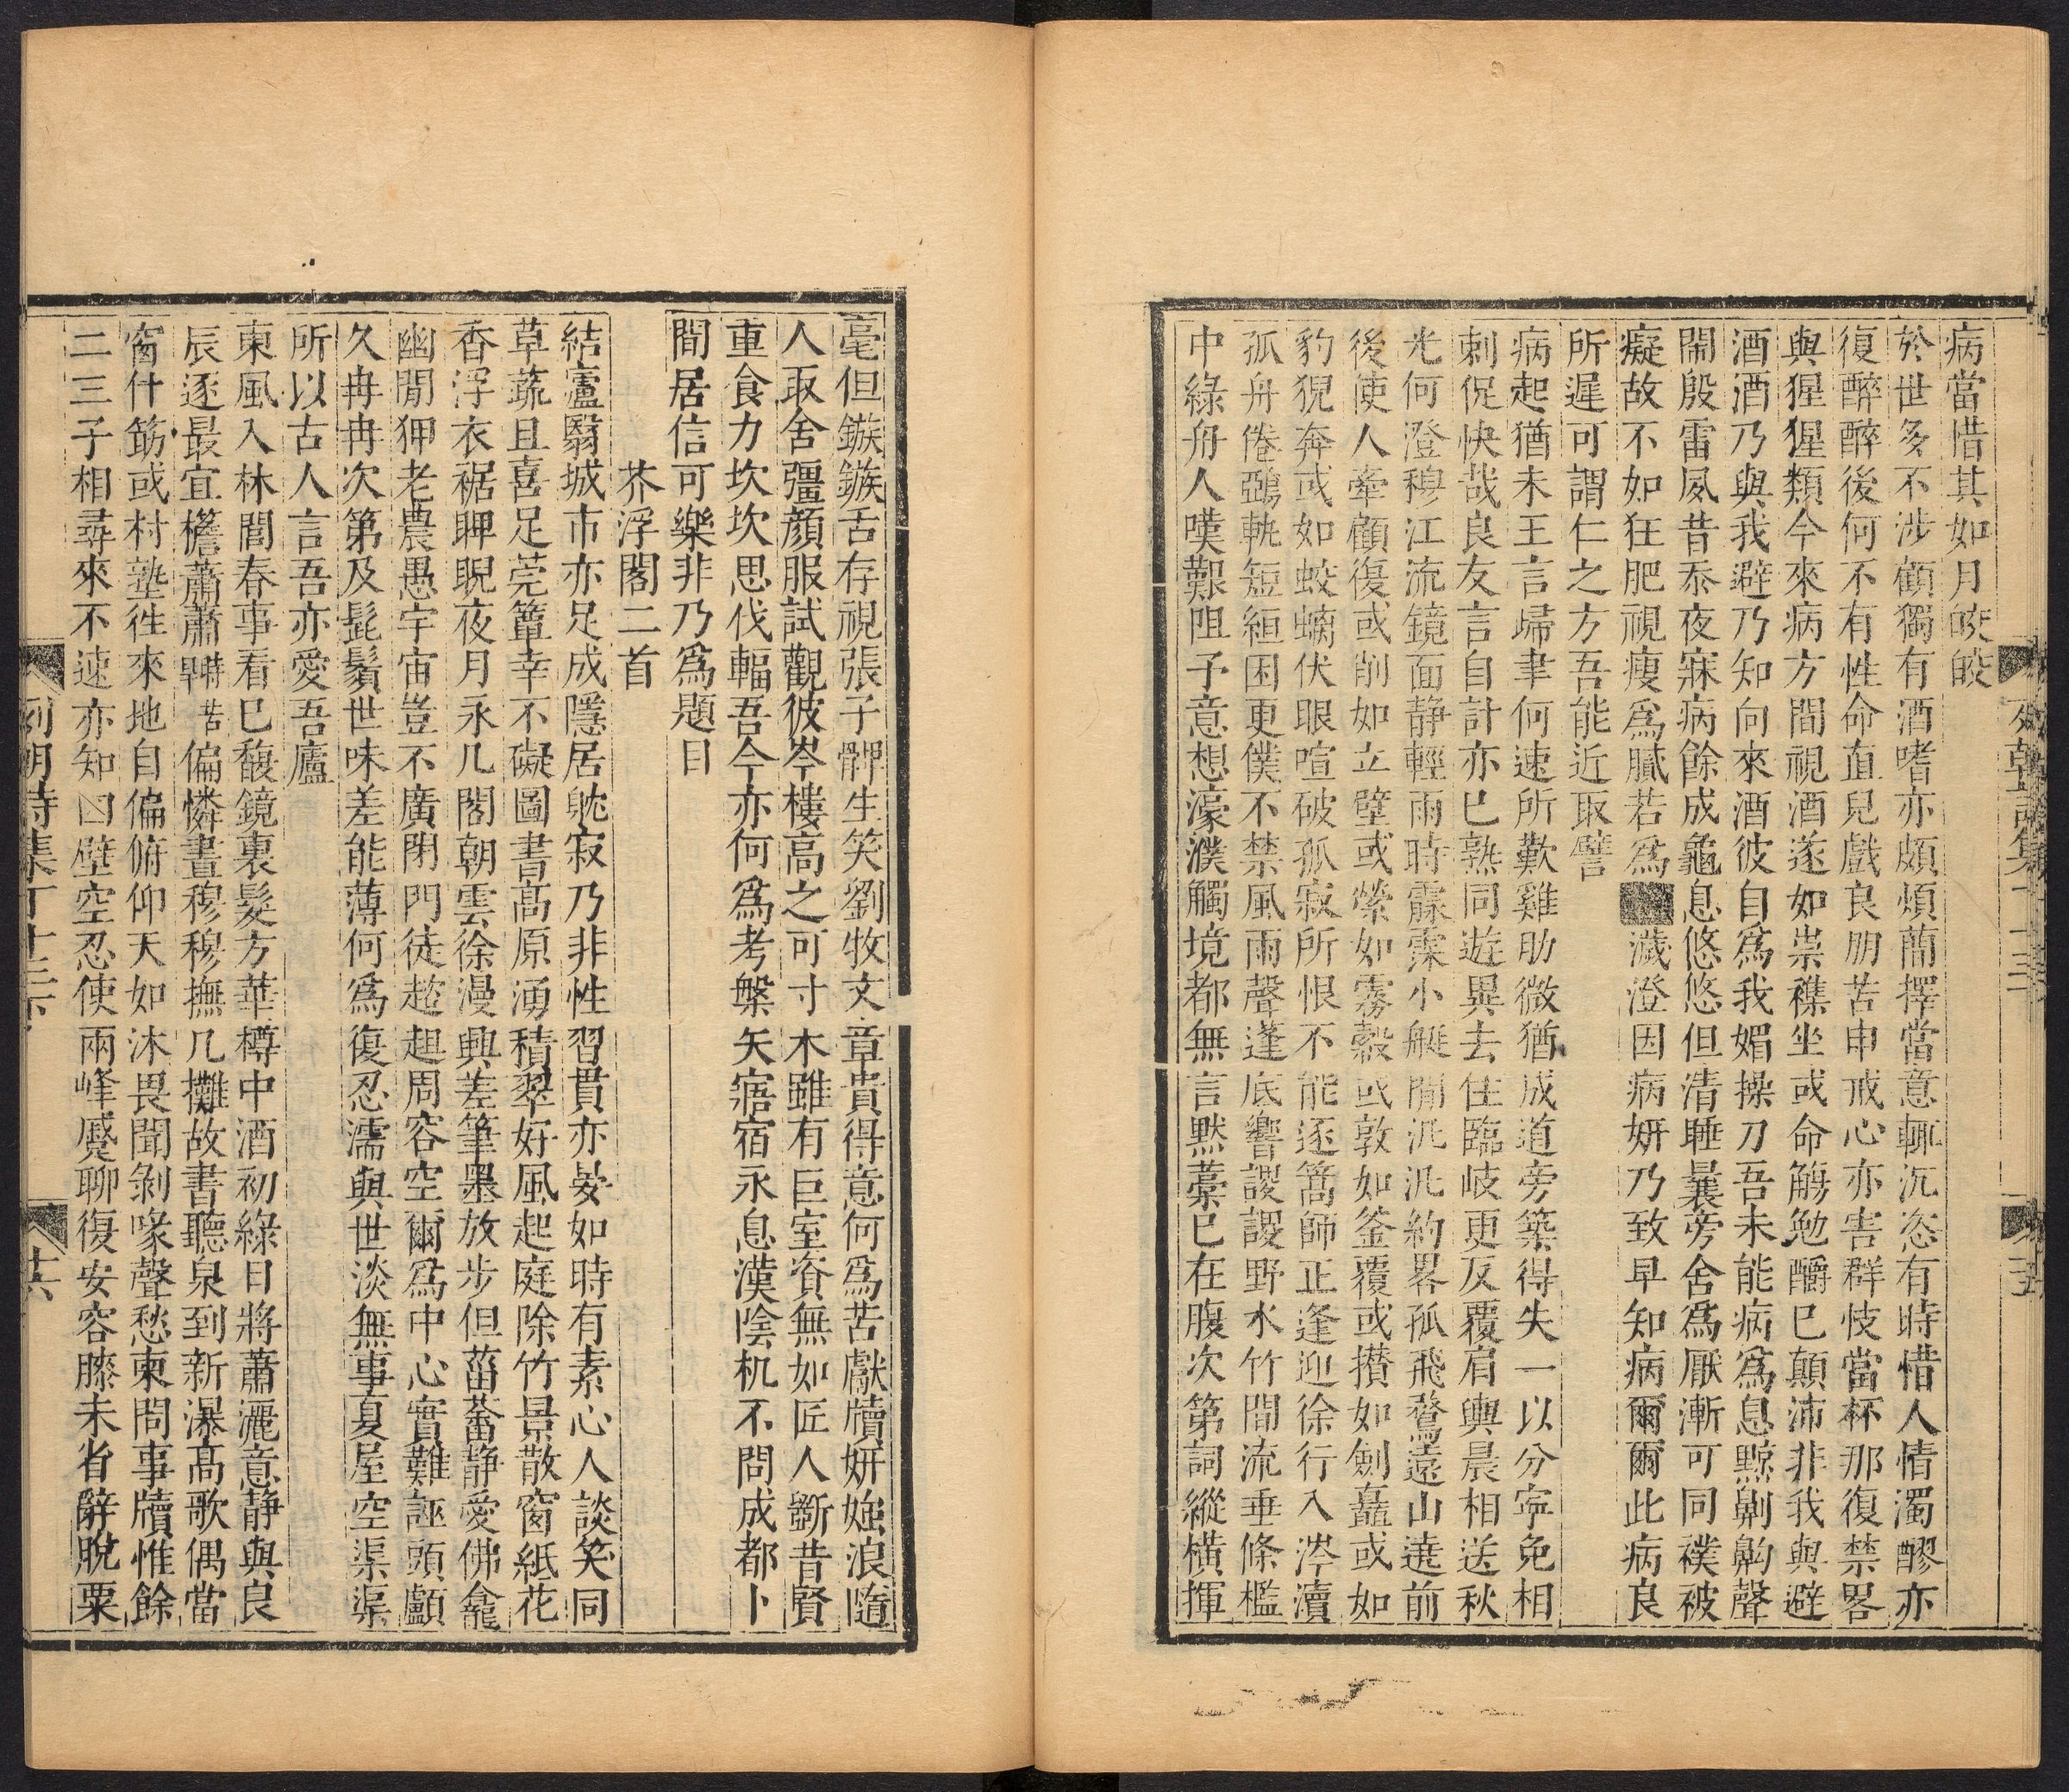 病當惜其如月皎皎
於世多不涉顧獨有酒嗜亦頗煩蕳擇當意輒沉恣有時惜人情濁醪亦
復醉醉後何不有性命直兒戲良朋苦申戒心亦害群伎當杯那復禁畧
與猩猩類今來病方間視酒遂如祟襍坐或命觴勉釂巳顛沛非我與避
酒酒乃與我避乃知向來酒彼自爲我媚操刀吾未能病爲息黥劓齁聲
鬧殷雷夙昔忝夜寐病餘成龜息悠悠但清睡曩旁舍爲厭漸可同襆被
癡故不如狂肥視瘦爲膩若爲濊澄因病妍乃致早知病爾爾此病良
所遲可謂仁之方吾能近取譬
病起猶未王言歸聿何速所歎雞肋微猶成道旁築得失一以分寧免相
刺促快哉良友言自計亦巳熟同遊異去住臨岐更反覆肩輿晨相送秋
光何澄穆江流鏡面静輕雨時霡霂小艇閒汎汎約畧孤飛鶩遠山遶前
後使人牽顧復或削如立壁或縈如霧縠或敦如釜覆或攅如劍矗或如
豹猊奔或如蛟螭伏眼喧破孤寂所恨不能逐篙師正逢迎徐行入涔瀆
孤舟倦鷁軏短絙困更僕不禁風雨聲蓬底響謖謖野水竹間流垂條檻
中綠舟人嘆艱阻予意想濠濮觸境都無言黙藁已在腹次第詞縱橫揮
毫但鏃鏃舌存視張子髀生笑劉牧文章貴得意何爲苦獻牘妍媸浪隨
人取舍彊顔服試觀彼岑樓高之可寸木雖有巨室資無如匠人斵昔賢
重食力坎坎思伐輻吾今亦何爲考槃矢寤宿永息漢隂机不問成都卜
閒居信可樂非乃爲題目
芥浮閣二首
結廬翳城市亦足成隱居躭寂乃非性習貫亦晏如時有素心人談笑同
草蔬且喜足莞簟幸不礙圖書髙原湧積翠好風起庭除竹景散窗紙花
香浮衣裾睥睨夜月永几閣朝雲徐漫興差筆墨放步但菑畬静愛佛龕
幽閒狎老農愚宇宙豈不廣閉門徒趑趄周容空爾爲中心實難誣頭顱
久冉冉次第及髭鬚世味差能薄何爲復忍濡與世淡無事夏屋空渠渠
所以古人言吾亦愛吾廬
東風入林間春事看巳馥鏡裏髮方華樽中酒初綠日將蕭灑意静與良
辰逐最宜檐蕭蕭偏憐晝穆穆撫几攤故書聽泉到新瀑髙歌偶當
窗什笏或村塾徃來地自偏俯仰天如沐畏聞剥啄聲愁柬問事牘惟餘
二三子相尋來不速亦知四壁空忍使兩峰蹙聊復安容膝未省辭脫粟
列朝詩集丁十三下
十六